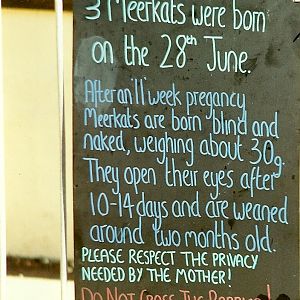 3 Meerkats were born
on the 28th June.
After an 11 week pregancy
Meerkats are born blind and
naked, weighing about 30g.
They open their eye's after
10-14 days and are weaned
around two months old.
PLEASE RESPECT THE PRIVACY
NEEDED BY THE MOTHER!
DO NOT CROSS THE BARRIER!